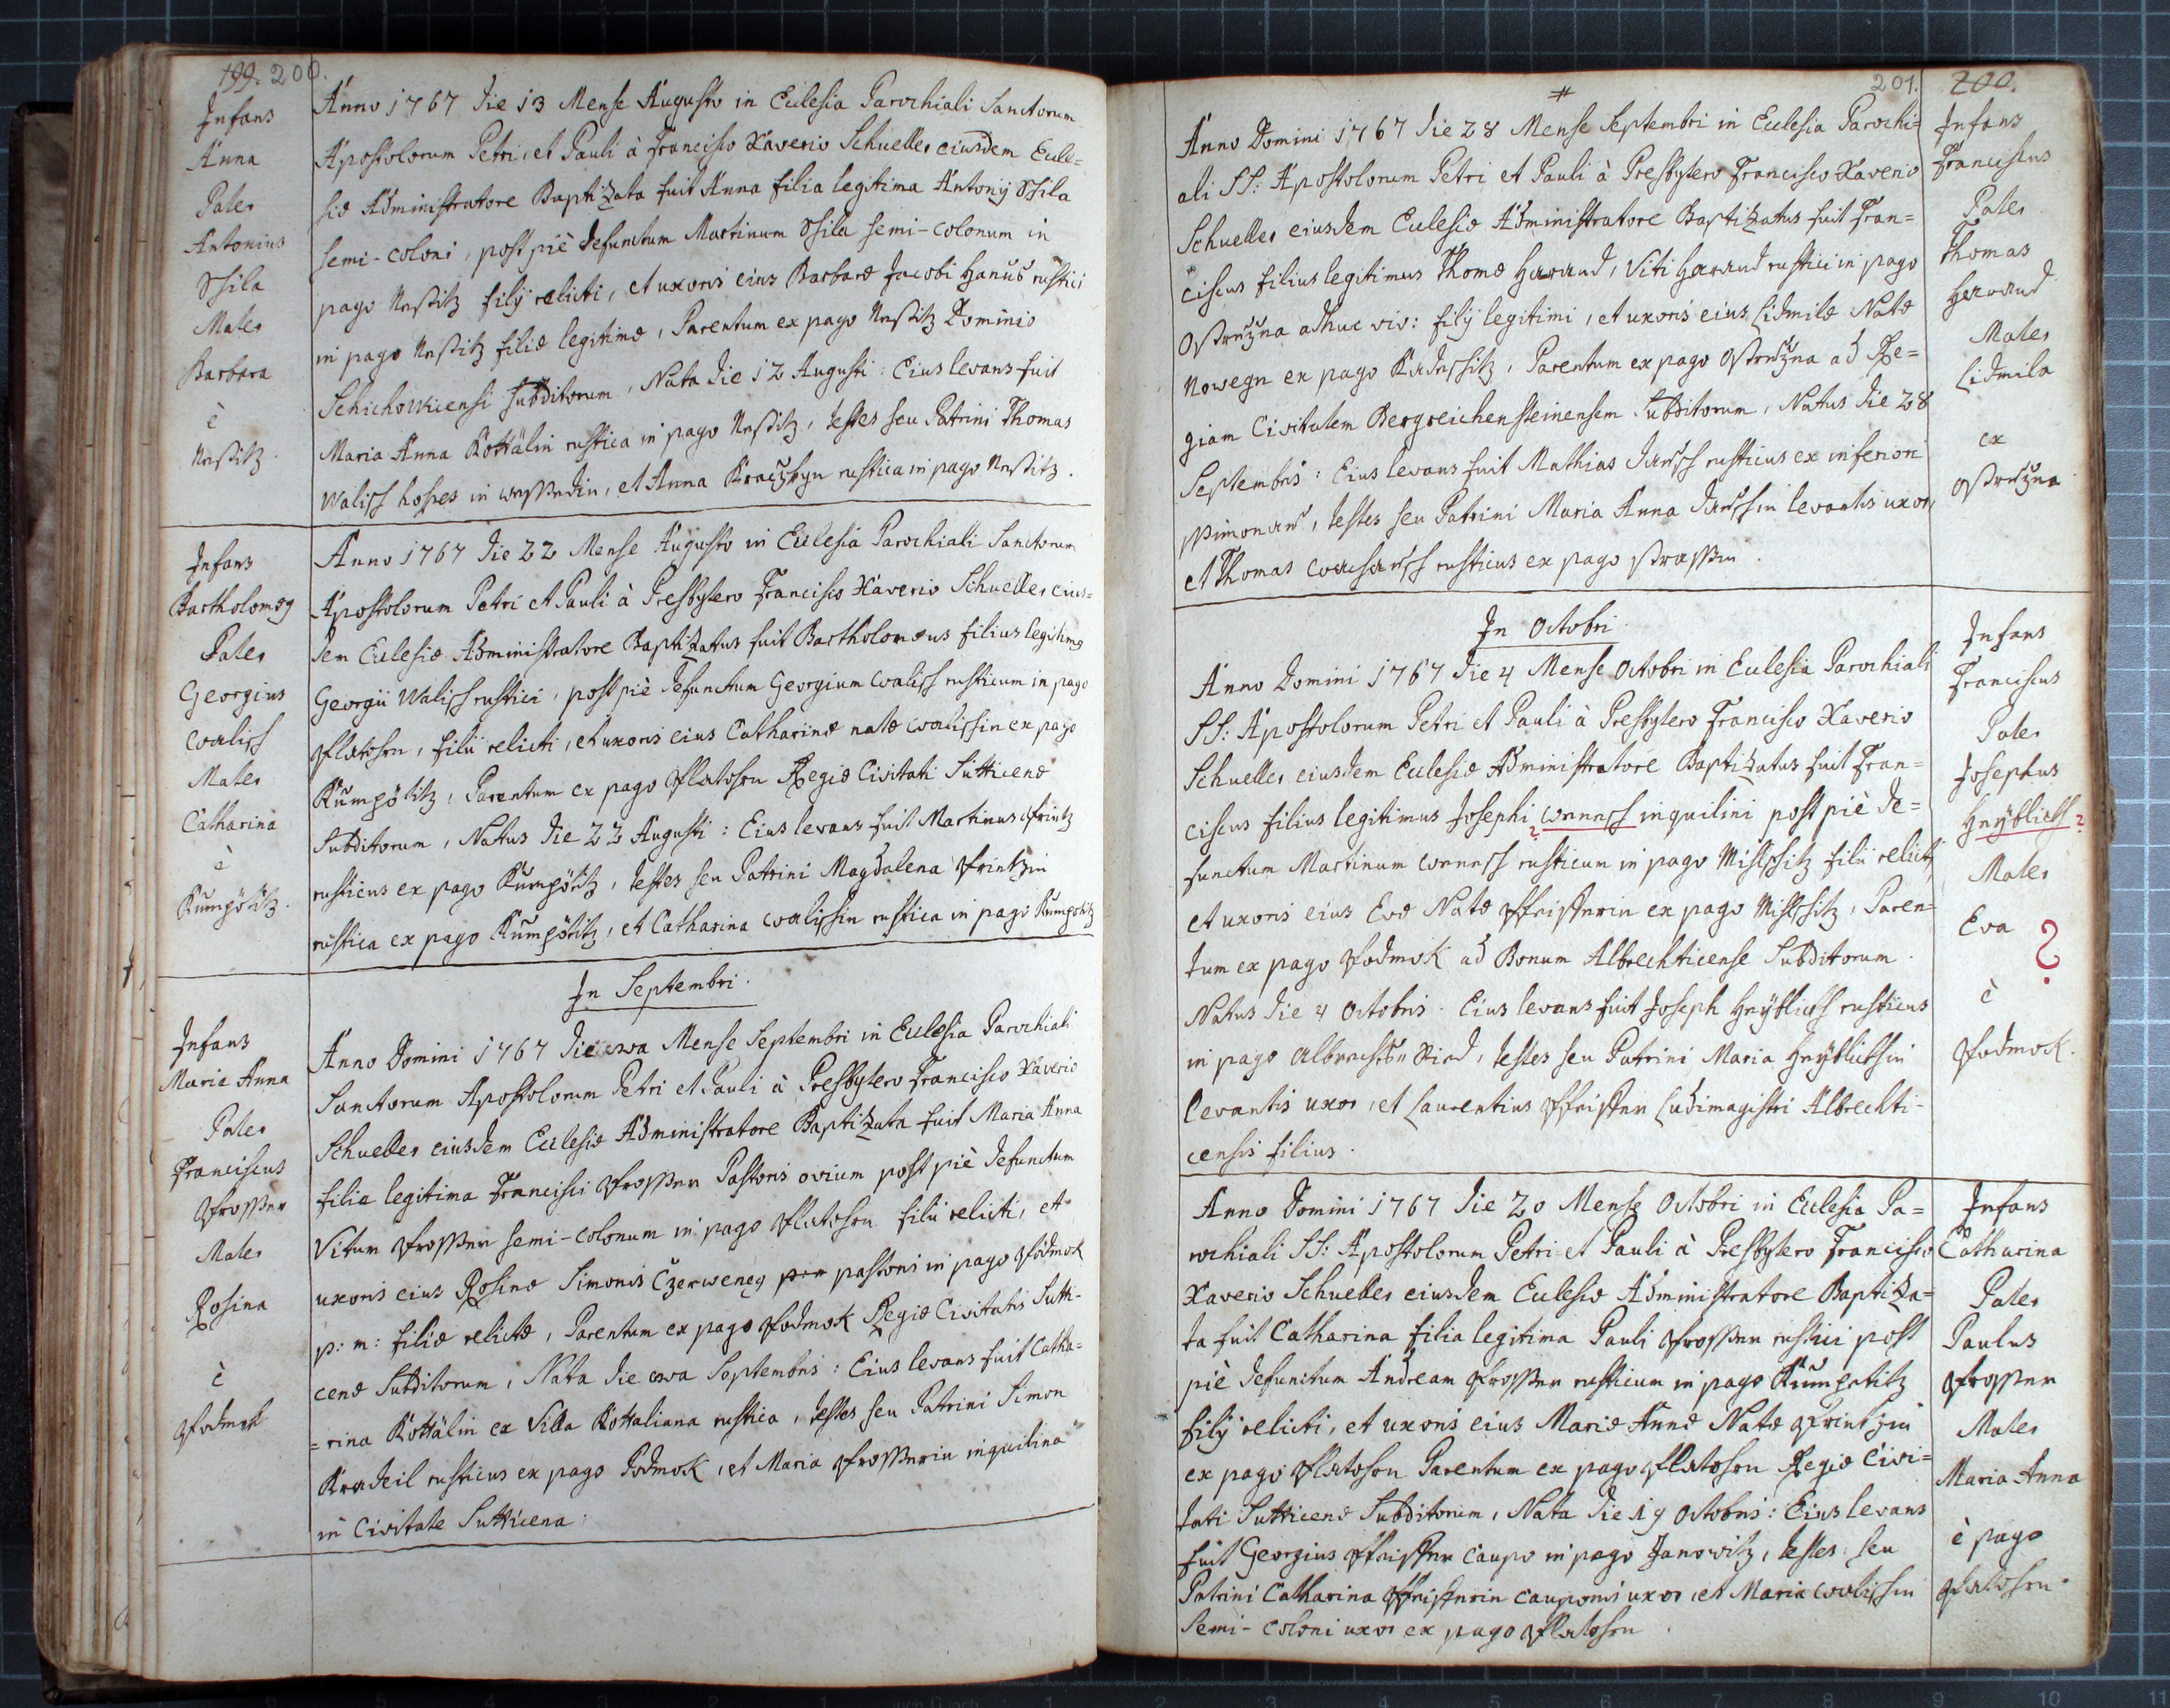 199. 200.
Infans
Anna
Pater
Antonius
Sshila
Mater
Barbara
è
Neßitz.
Anno 1767 die 13 Mense Augusto in Ecclesia Parochiali Sanctorum
Apostolorum Petri, et Pauli à Francisco Xaverio Schueller eiusdem Eccle=
siæ Administratore Baptizata fuit Anna filia legitima Antonij Sshila
semi-coloni, post piè defunctum Martinum Sshila semi-colonum in
pago Neßitz filij relicti, et uxoris eius Barbaræ Jacobi Hanus rustici
in pago Neßitz filiæ legitimæ, Parentum ex pago Neßitz Dominio
Schichowicensi subditorum, Nata die 12 Augusti: Eius levans fuit
Maria Anna Kottälin rustica in pago Neßitz, testes seu Patrini Thomas
Walisch hospes in, et Anna rustica in pago Neßitz.
Infans
Bartholomæg
Pater
Georgius
Walisch
Mater
Catharina
è
Kumpötitz.
Anno 1767 die 22 Mense Augusto in Ecclesia Parochiali Sanctorum
Apostolorum Petri et Pauli à Presbytero Francisco Xaverio Schueller eius=
dem Ecclesiæ Administratore Baptizatus fuit Bartholomæus filius legitimg
Georgii Walisch rustici, post piè defunctum Georgium Walisch rusticum in pago
Platosrn, filii relicti, et uxoris eius Catharinæ natæ Walischin ex pago
Kumpötitz, Parentum ex pago Platosrn Regiæ Civitati Sutticenæ
Subditorum, Natus die 22 Augusti: Eius levans fuit Martinus Printz
rusticus ex pago Kumpötitz, testes seu Patrini Magdalena Printzin
rustica ex pago Kumpötitz, et Catharina Walischin rustica in pago Kumpötitz
In Septembri.
Infans
Maria Anna
Pater
Franciscus
Prosser
Mater
Rosina
è
Podmok
Anno Domini 1767 die Mense Septembri in Ecclesia Parochiali
Sanctorum Apostolorum Petri et Pauli à Presbytero Francisco Xaverio
Schueller eiusdem Ecclesiæ Administratore Baptizata fuit Maria Anna
filia legitima Francisci Prosser Pastoris ovium post piè defunctum
Vitum Prosser semi-colonum in pago Platosrn filii relicti, et
uxoris eius Rosinæ Simonis Czerweneg pastoris in pago Podmok
p: m: filiæ relictæ, Parentum ex pago Podmok Regiæ Civitatis Sutti-
cenæ Subditorum, Nata die Septembris: Eius levans fuit Catha=
=rina Kottälin ex Villa Kottaliana rustica, testes seu Patrini Simon
Kradeil rusticus ex pago Podmok, et Maria Prosserin inquilina
in Civitate Sutticena:
201. 200.
#
Anno Domini 1767 die 28 Mense Septembri in Ecclesia Parochi=
ali SS: Apostolorum Petri et Pauli à Presbytero Francisco Xaverio
Schueller eiusdem Ecclesiæ Administratore Baptizatus fuit Fran=
ciscus filius legitimus Thomæ Havrand, Viti Havrand rustici in pago
Ostružna adhuc viv: filij legitimi, et uxoris eius Lidmilæ Natæ
Nowegn ex pago Kadeschitz, Parentum ex pago Ostružna ad Re=
giam Civitatem Bergreichensteinensem Subditorum, Natus die 28
Septembris: Eius levans fuit Mathias rusticus ex inferiori
, testes seu Patrini Maria Anna levantis uxor,
et Thomas rusticus ex pago
Infans
Franciscus
Pater
Thomas
Havrand
Mater
Lidmila
ex
Ostružna
In Octobri.
Anno Domini 1767 die 4 Mense Octobri in Ecclesia Parochiali
SS: Apostolorum Petri et Pauli à Presbytero Francisco Xaverio
Schueller eiusdem Ecclesiæ Administratore Baptizatus fuit Fran=
ciscus filius legitimus Josephi ? Wenesch inquilini post piè de=
functum Martinum Wenesch rusticum in pago Mislschitz filii relicti
et uxoris eius Evæ Natæ Pfeisterin ex pago Mislschitz, Paren=
tum ex pago Podmok ad Bonum Albrechticense Subditorum.
Natus die 4 Octobris. Eius levans fuit Joseph Heyblich rusticus
in pago, testes seu Patrini Maria Heyblichin
levantis uxor, et Laurentius Pfeister Ludimagistri Albrechti-
censis filius.
Infans
Franciscus
Pater
Josephus
Heyblich ?
Mater
Eva ?
è
Podmok.
Anno Domini 1767 die 20 Mense Octobri in Ecclesia Pa=
rochiali SS: Apostolorum Petri et Pauli à Presbytero Francisco
Xaverio Schueller eiusdem Ecclesiæ Administratore Baptiza=
ta fuit Catharina filia legitima Pauli Prosser rustici post
piè defunctum Andream Prosser rusticum in pago Kumpatitz
filij relicti, et uxoris eius Mariæ Annæ Natæ Printzin
ex pago Platosrn Parentum ex pago Platosrn Regiæ Civi=
tati Sutticenæ Subditorum, Nata die 19 Octobris: Eius levans
fuit Georgius Pfeister Caupo in pago Janowitz, testes seu
Patrini Catharina Pfeisterin Cauponis uxor, et Maria Walischin
Semi-Coloni uxor ex pago Platosrn.
Infans
Catharina
Pater
Paulus
Prosser
Mater
Maria Anna
è pago
Platosrn.